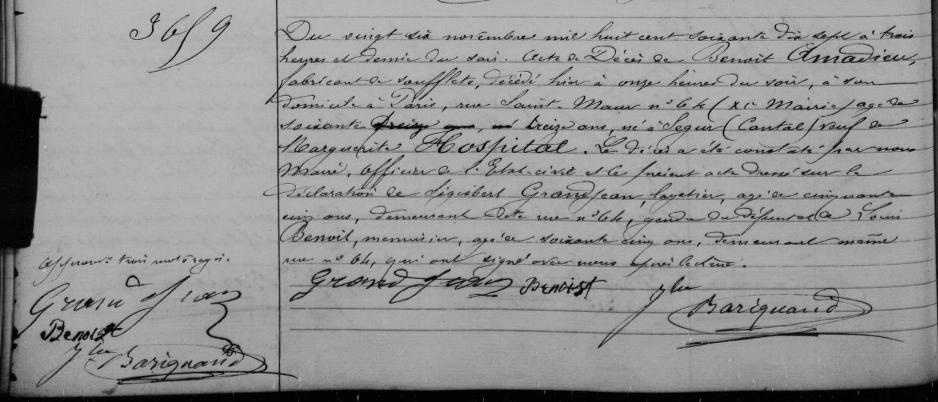 3659
Du vingt six novembre mil huit cent soixante dix sept à trois
heures et demie du soir. Acte de Décès de Benoit Amadieu,
fabricant de soufflets, décédé hier à onze heures du soir, à son
domicile à Paris, rue Saint Maur n° 64 (XIe Mairie) agé de
soixante treize ans, né treize ans, né à Segur (Cantal) veuf de
Marguerite Hospital. Le décès a été constaté par nous
Maire, officier de l'Etat-civil et le présent acte dressé sur la
déclaration de Sigisbert Grandjean, layetier, agé de cinquante
cinq ans, demeurant dite rue n° 64, gendre du défunt et de Louis
Benoit, menuisier, agé de soixante cinq ans, demeurant même
rue n° 64, qui ont signé avec nous après lecture.
Grand Jean Benoist
Barignand
Approuvé trois mots rayés.
Grand Jean
Benoist
Barignand